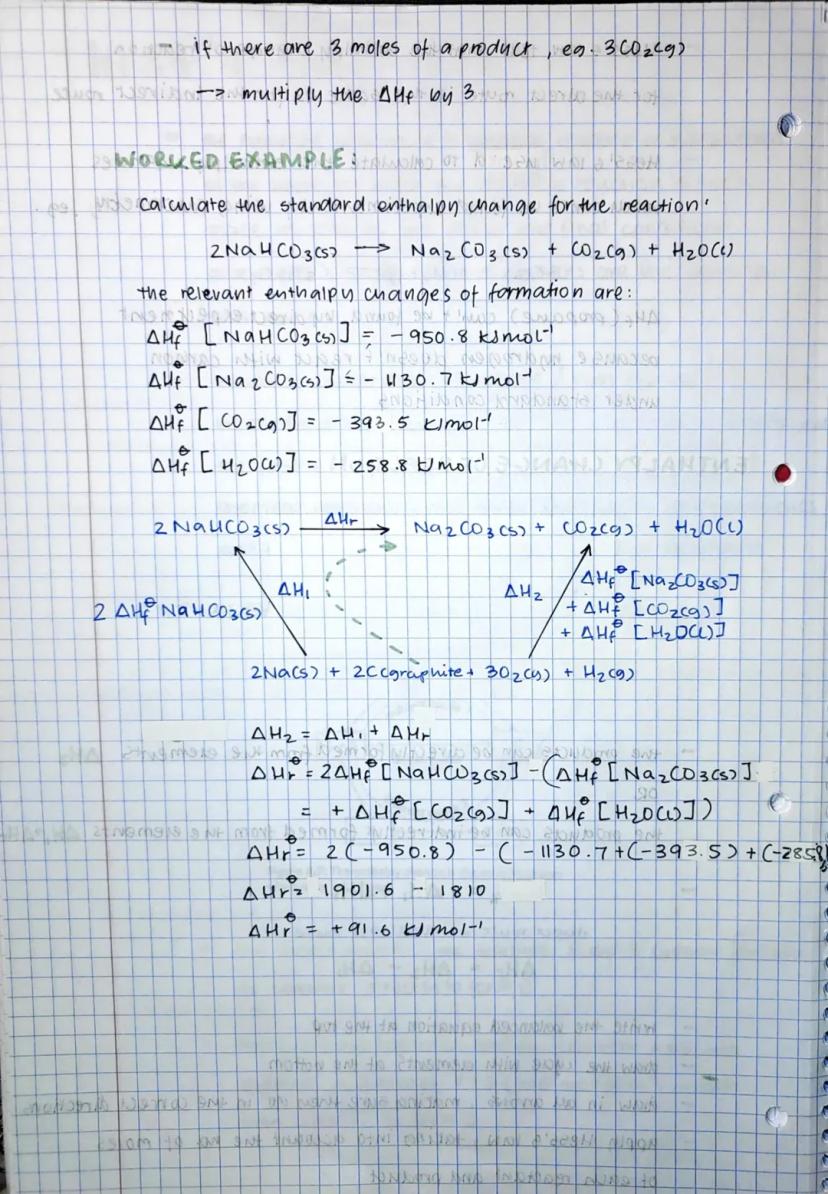 - if there are 3 moles of a product, eg. 3CO2(g)
-> multiply the ΔHf by 3
WORKED EXAMPLE:
calculate the standard enthalpy change for the reaction:
2NaHCO3(s) → Na2CO3(s) + CO2(g) + H2O(l)
the relevant enthalpy changes of formation are:
ΔHf⦵ [NaHCO3(s)] = -950.8 kJmol-1
ΔHf⦵ [Na2CO3(s)] = -1130.7 kJmol-1
ΔHf⦵ [CO2(g)] = -393.5 kJmol-1
ΔHf⦵ [H2O(l)] = -258.8 kJmol-1
2NaHCO3(s) ΔHr → Na2CO3(s) + CO2(g) + H2O(l)
2ΔHf⦵ NaHCO3(s) ΔH1 ΔH2 ΔHf⦵ [Na2CO3(s)]
+ ΔHf⦵ [CO2(g)]
+ ΔHf⦵ [H2O(l)]
2Na(s) + 2C(graphite + 3O2(g) + H2(g)
ΔH2 = ΔH1 + ΔHr
ΔHr⦵ = 2ΔHf⦵[NaHCO3(s)] - (ΔHf⦵[Na2CO3(s)]
= + ΔHf⦵[CO2(g)] + ΔHf⦵[H2O(l)])
ΔHr⦵ = 2(-950.8) - (-1130.7+(-393.5)+(-285.8)
ΔHr⦵ = 1901.6 - 1810
ΔHr⦵ = +91.6 kJ mol-1